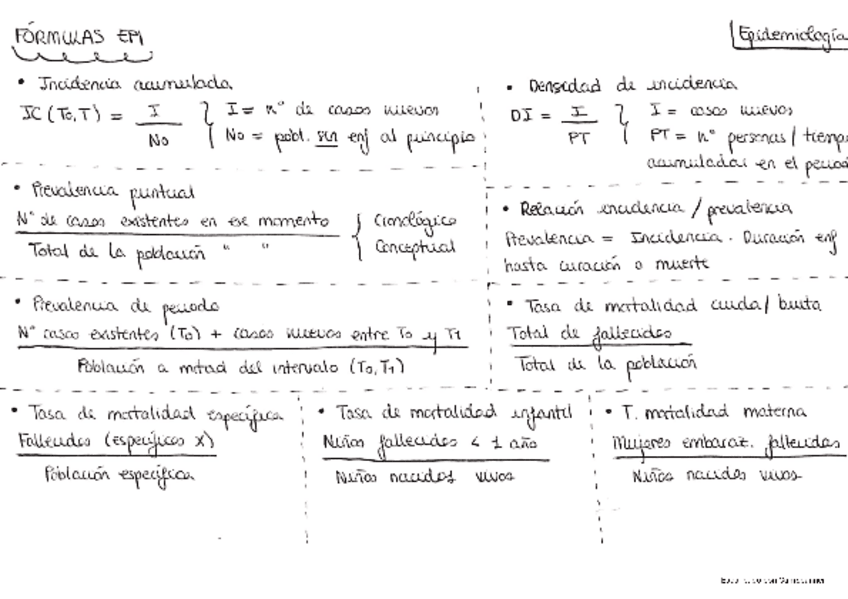 FÓRMULAS EPI
Epidemiología
• Incidencia acumulada
IC (To,T) = I / No
I = nº de casos nuevos
No = pobl. sin enf al principio
• Densidad de incidencia
DI = I / PT
I = casos nuevos
PT = nº personas / tiemp
acumuladas en el period
• Prevalencia puntual
Nº de casos existentes en ese momento
Total de la población " "
Cronológico
Conceptual
• Relación incidencia / prevalencia
Prevalencia = Incidencia · Duración enf
hasta curación o muerte
• Prevalencia de periodo
Nº casos existentes (To) + casos nuevos entre To y T1
Población a mitad del intervalo (To,T1)
• Tasa de mortalidad cruda / bruta
Total de fallecidos
Total de la población
• Tasa de mortalidad específica
Fallecidos (específicos X)
Población específica
• Tasa de mortalidad infantil
Niños fallecidos < 1 año
Niños nacidos vivos
• T. mortalidad materna
Mujeres embaraz. fallecidas
Niños nacidos vivos